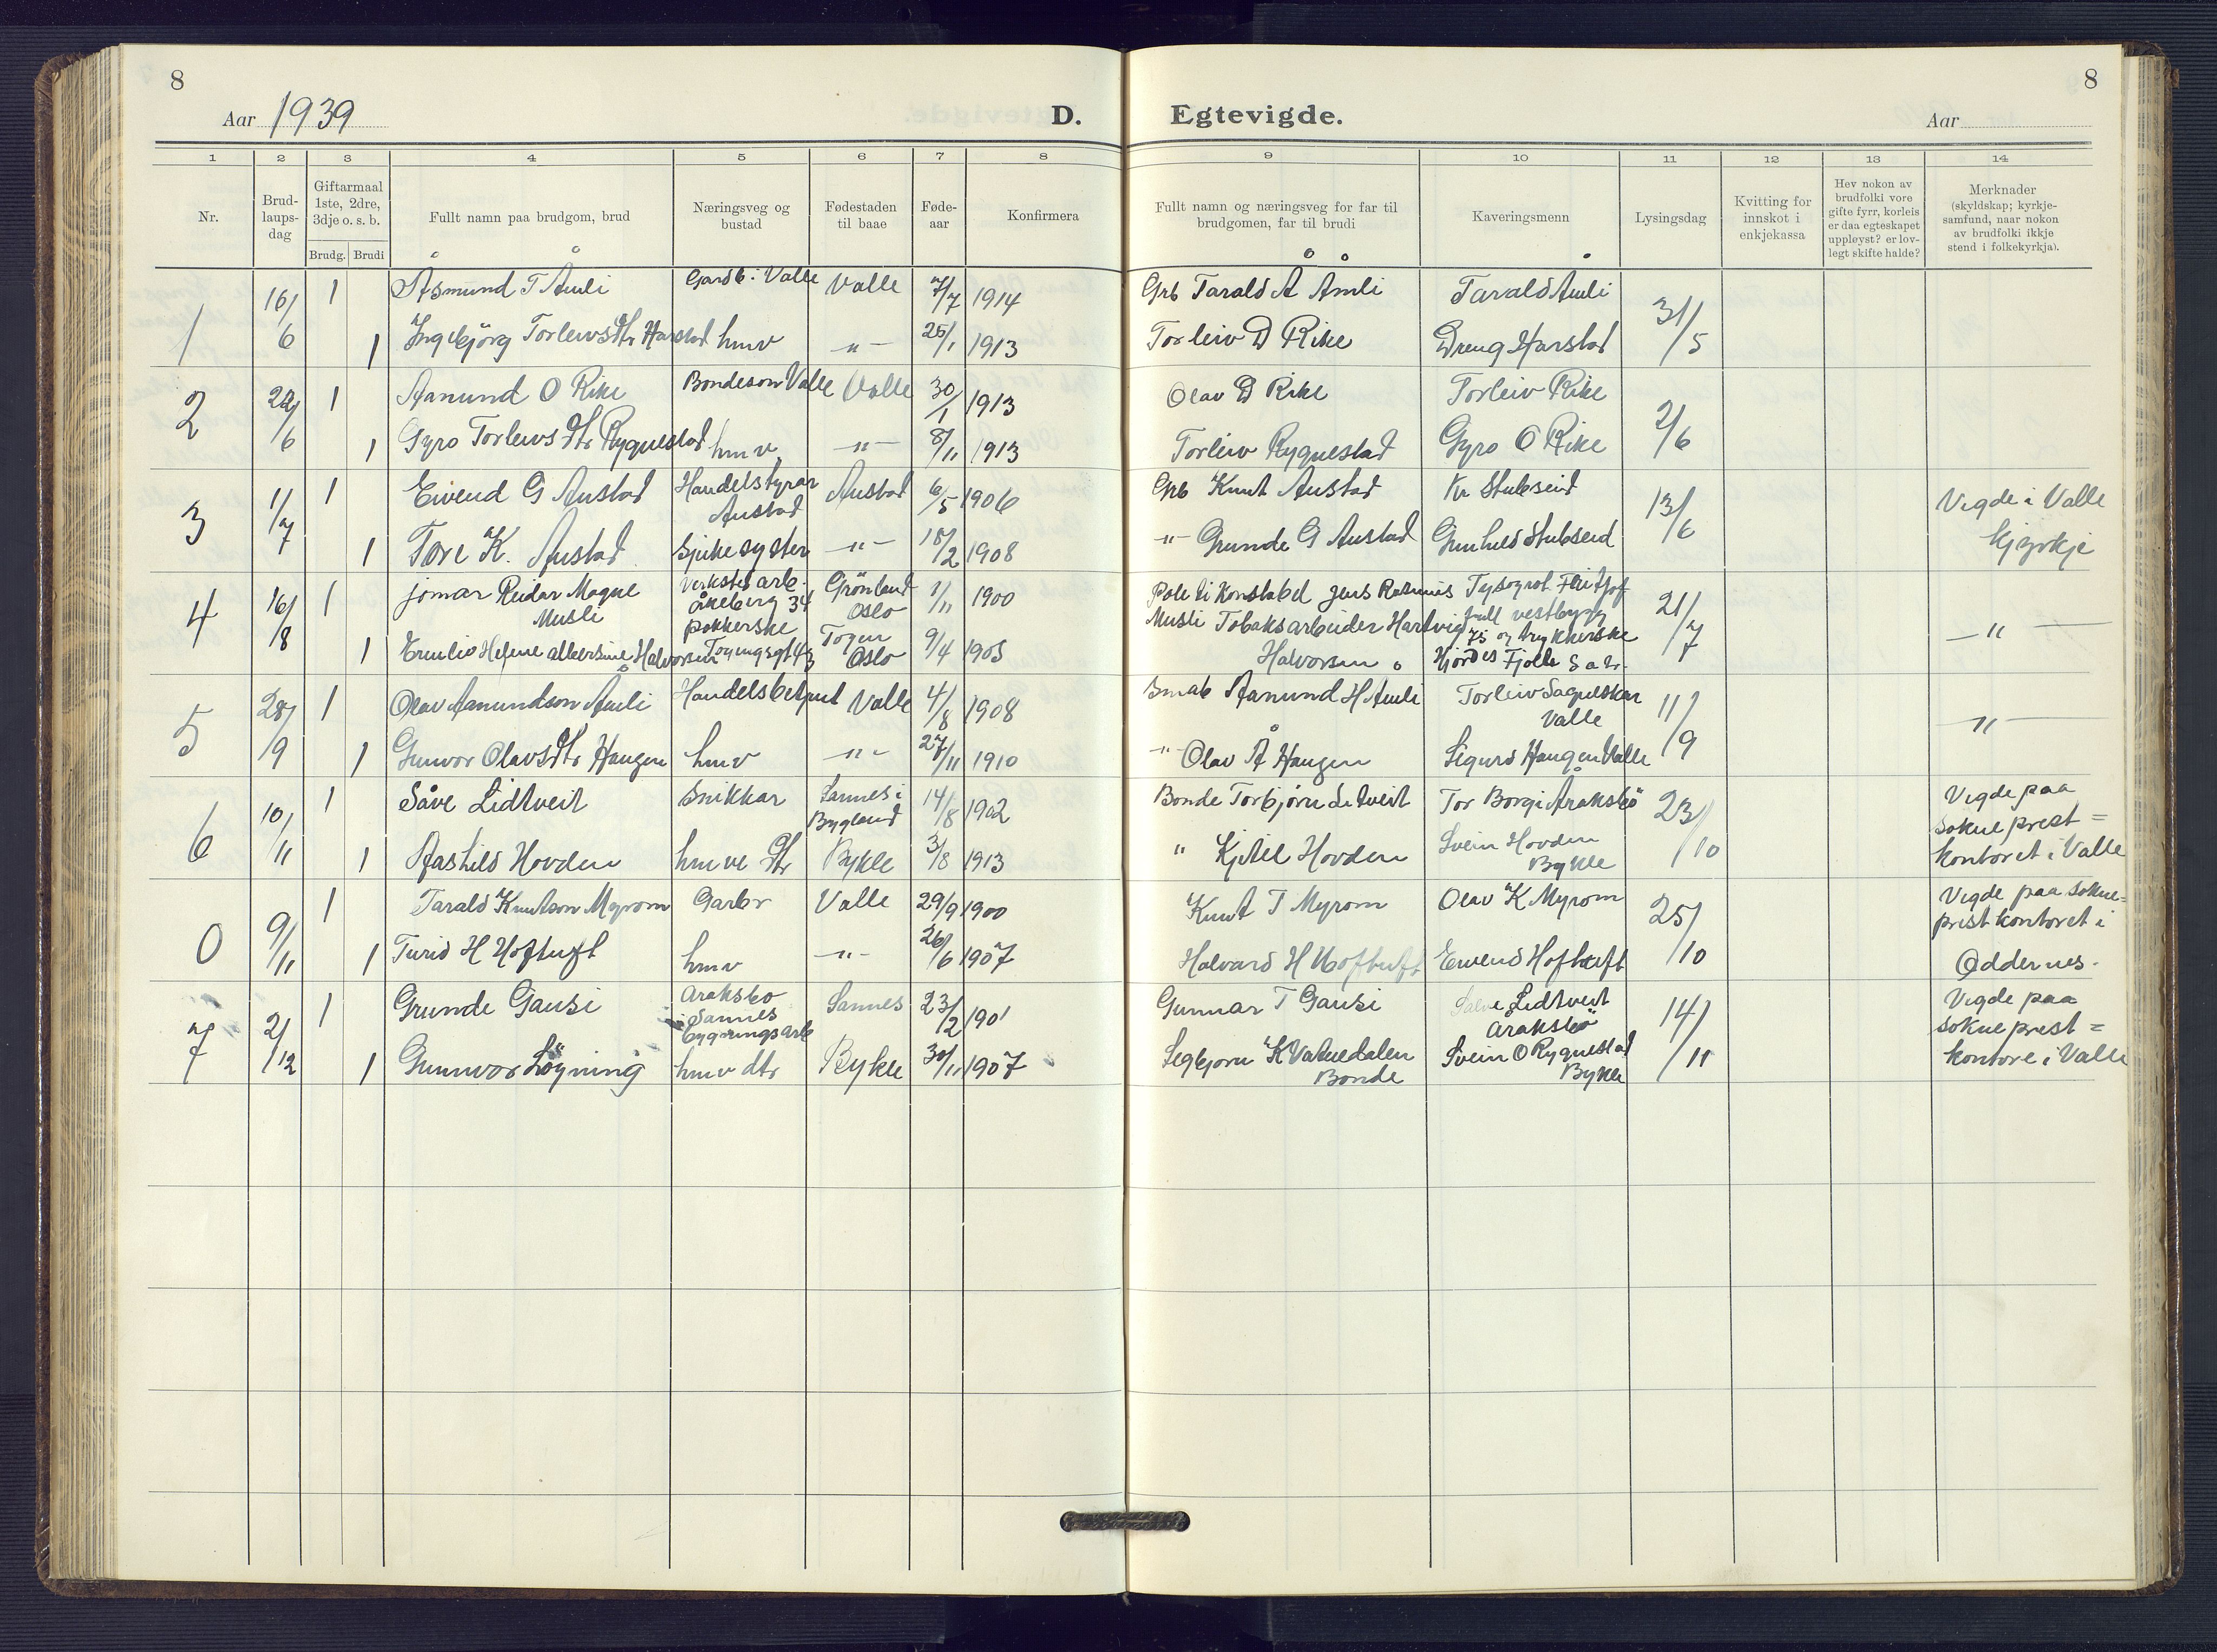 8
Aar 1939
D.
Egtevigde.
8
Aar
1 2 3 4 5 6 7 8 9 10 11 12 13 14
Nr.
Brud-
laups-
dag
Giftarmaal
1ste, 2dre,
3dje o. s. b.
Brudg. Brudi
Fullt namn paa brudgom, brud
Næringsveg og
bustad
Fødestaden
til baae
Føde-
aar
Konfirmera
Fullt namn og næringsveg for far til
brudgomen, far til brudi
Kaveringsmenn
Lysingsdag
Kvitting for
innskot i
enkjekassa
Hev nokon av
brudfolki vore
gifte fyrr, korleis
er daa egteskapet
uppløyst? er lov-
legt skifte halde?
Merknader
(skyldskap; kyrkje-
samfund, naar nokon
av brudfolki ikkje
stend i folkekyrkja).
1 16/6 1 Åsmund T Åmli Gardb i Valle Valle 7/7 1914 Grb Tarald Å Åmli Tarald Åmli 31/5
1 Ingebjörg Torleivsdtr Harstad hmv -"- 25/1 1913 Torleiv D Rike Dreng Harstad
2 22/6 1 Aanund O Rike Bondeson Valle Valle 30/1 1913 Olav D Rike Torleiv Rike 2/6
1 Gyro Torleivs dtr Rygnestad hmv -"- 8/11 1913 Torleiv Rygnestad Gyro O Rike
3 1/7 1 Eivend G Austad Handelstyrar Austad 6/5 1906 Grb Knut Austad Kr Stubseid 13/6 Vigde i Valle
Austad
1 Tore K. Austad Sjukesyster -"- 18/2 1908 -"- Grunde G Austad Gunhild Stubseid kjyrkje
4 16/8 1 jomar Reidar Magne Verksted arb. Grönland 1/11 1900 Politikonstabel Jens Rasmus Typograf Fritjof 21/7 -"-
Musli åkeberg 34 Oslo Musli Tobaksarbeider Hartvig
pakkerske og trykkerske
1 Emilie Helene albertine Halvorsen Toyengt 43 Toyen Oslo 9/4 1905 Halvorsen Hjördis Fjelle
5 28/9 1 Olav Aanundson Åmli Handelsbetjent Valle 4/8 1908 Smab Aanund H Åmli Torleiv Sagneskar 11/9 -"-
Valle
1 Gunvor Olavsdtr Haugen hmv -"- 27/11 1910 -"- Olav Å Haugen Sigurd Haugen Valle
6 10/11 1 Såve Lidtveit Snikkar Sannes i 14/8 1902 Bonde Torbjørn Litveit Tor Borgi Araksbö 23/10 Vigde paa
Bygland sokneprest=
1 Aashild Hovden hmv dtr Bykle 3/8 1913 " Kjetil Hovden Svein Hovden kontoret i Valle
Bykle
0 9/11 1 Tarald Knutson Myrom Garbr Valle 29/9 1900 Knut T Myrom Olav K Myrom 25/10 Vigde paa sokne-
prestkontoret i
1 Turid H Hoftuft hmv -"- 26/6 1907 Halvard H Hoftuft Eivend Hoftuft Oddernes.
7 2/12 1 Grunde Gausi Araksbo Sannes 23/2 1901 Gunnar T Gausi Salve Lidtveit 14/11 Vigde paa
i Sannes Araksbö sokneprest=
bygningsarb
1 Gunnvor Löyning hmv dtr Bykle 30/11 1907 Segbjorn K Vatnedalen Svein O Rygnestad kontore i Valle
Bonde Bykle